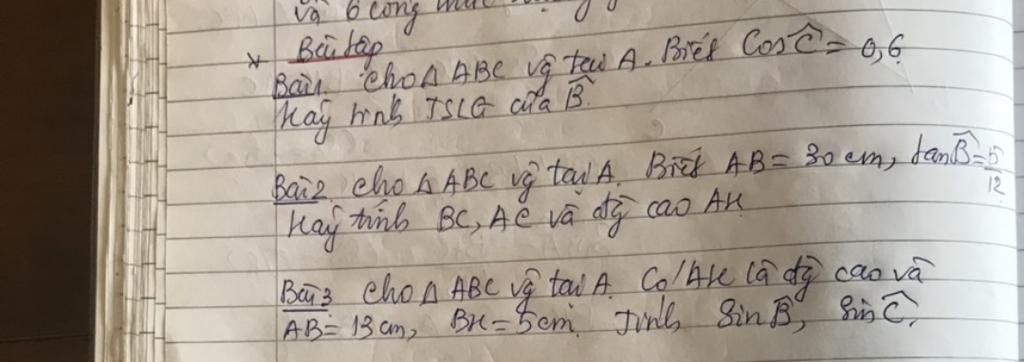 và 6 công thức
* Bài tập
Bài 1. Cho Δ ABC vg̃ tại A. Biết Cos Ĉ = 0,6
Hãy tính TSLG của B̂.
Bài 2. Cho Δ ABC vg̃ tại A. Biết AB = 30 cm, tan B̂ = 5/12
Hãy tính BC, AC và đg̃ cao AH
Bài 3 Cho Δ ABC vg̃ tại A. Có AH là đg̃ cao và
AB = 13 cm, BH = 5cm. Tính Sin B̂, Sin Ĉ.